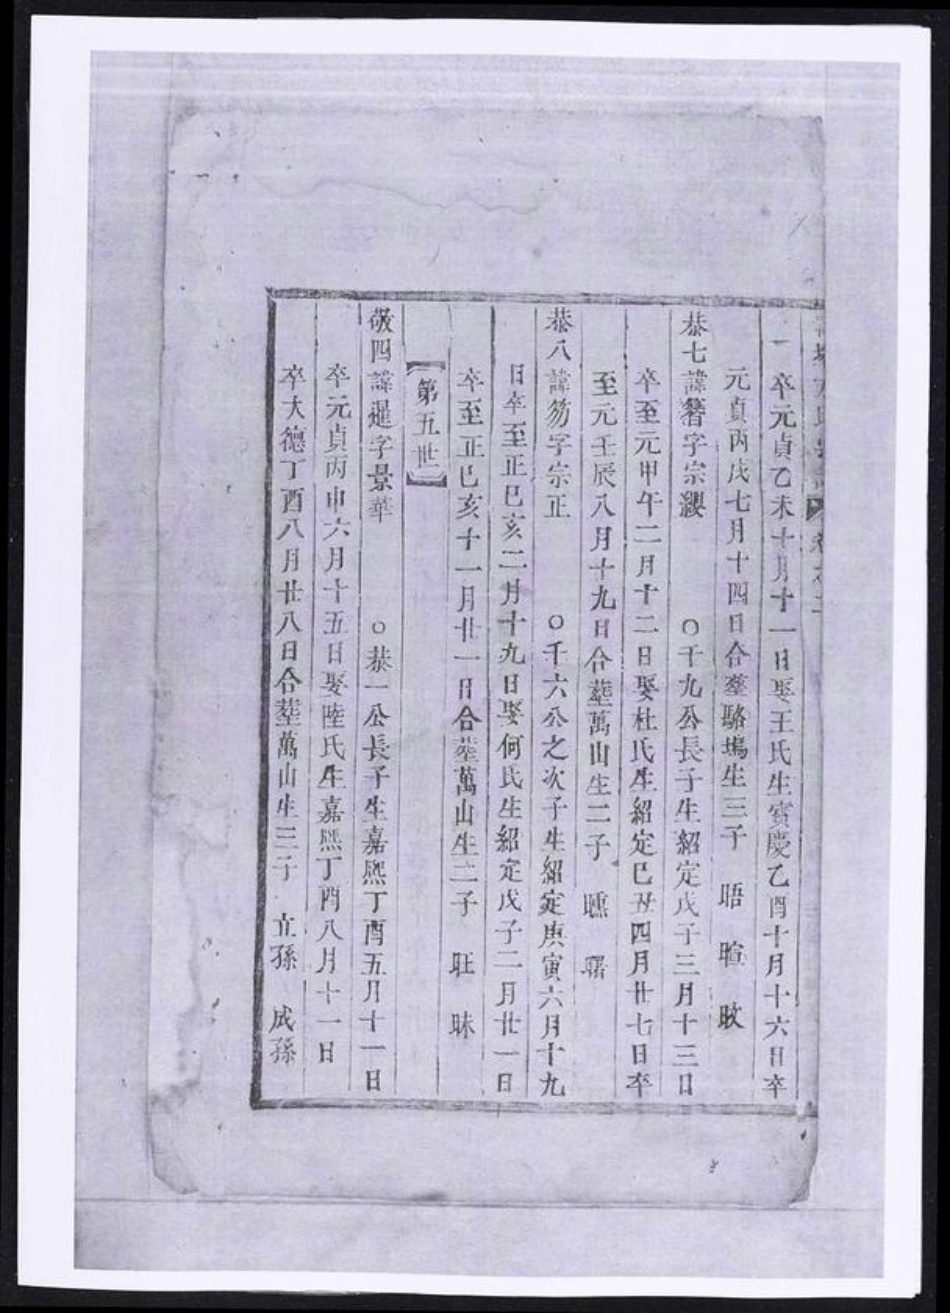 卒元貞乙未十月十一日娶王氏生寳慶乙酉十月十六日卒
元貞丙戌七月十四日合塟駱塢生三子 晤 暄 旼
恭七諱簪字宗纓 ○千九公長子生紹定戊子三月十三日
卒至元甲午二月十二日娶杜氏生紹定巳丑四月廿七日卒
至元壬辰八月十九日合塟萬山生二子 曛 曙
恭八諱笏字宗正 ○千六公之次子生紹定庚寅六月十九
日卒至正巳亥二月十九日娶何氏生紹定戊子二月廿一日
卒至正巳亥十一月廿一日合塟萬山生二子 旺 昧
【第五世】
敬四諱暹字景華 ○恭一公長子生嘉熈丁酉五月十一日
卒元貞丙申六月十五日娶陸氏生嘉熈丁酉八月十一日
卒大德丁酉八月廿八日合塟萬山生三子 立孫 成孫